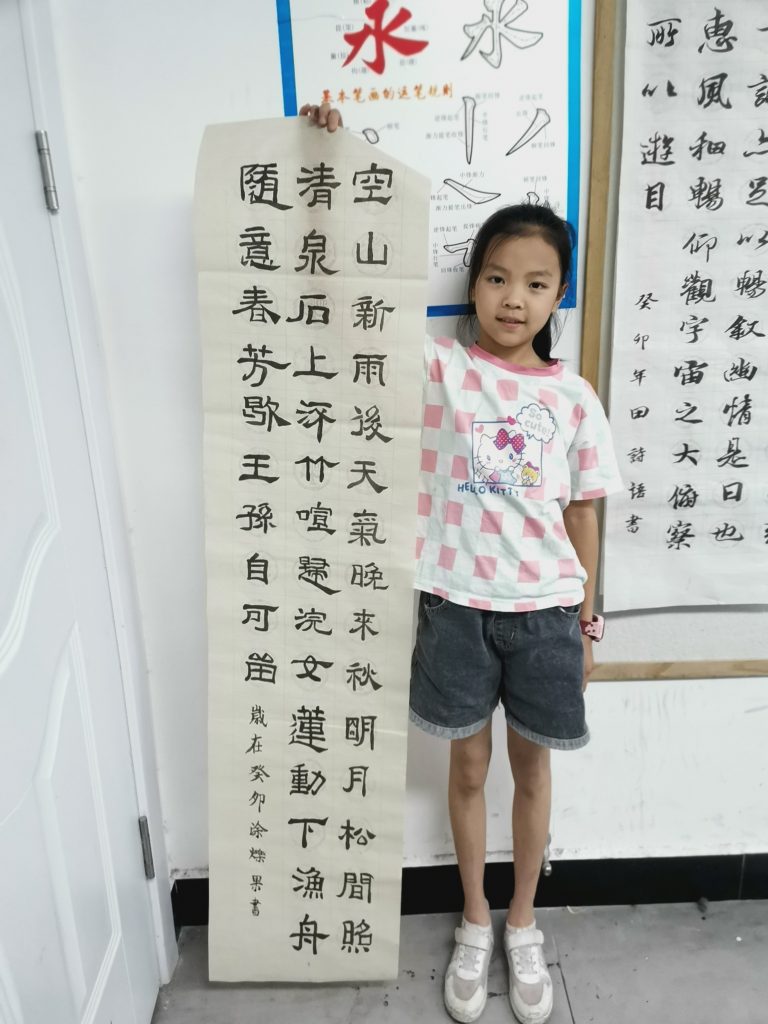 永
永
基本笔画的运笔规则
空山新雨後天氣晚来秋明月松間照
清泉石上流竹喧歸浣女蓮動下漁舟
隨意春芳歇王孫自可留
歲在癸卯涂爍果書
So cute!
HELLO KITTY
一詠亦足以暢叙幽情是日也
惠風和暢仰觀宇宙之大俯察
所以遊目
癸卯年田詩語書